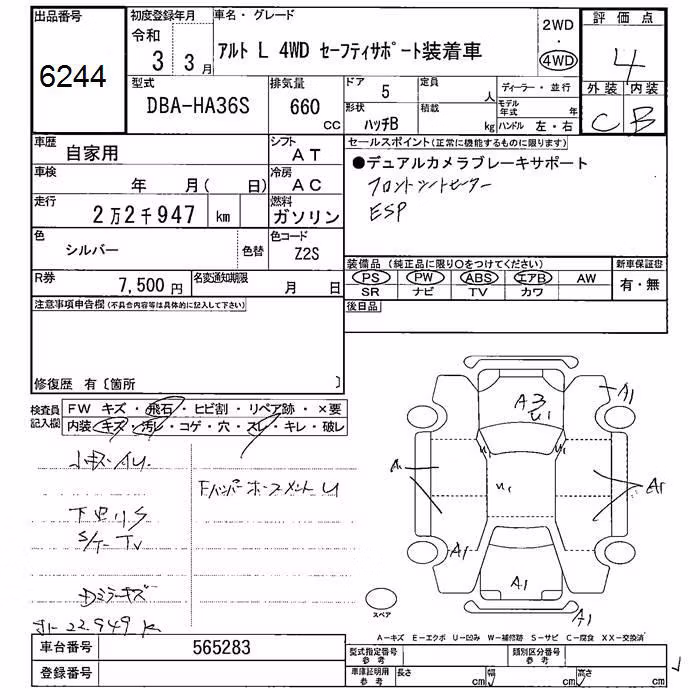 出品番号
6244
初度登録年月
令和
3 3月
車名・グレード
アルト L 4WD セーフティサポート装着車
2WD
・
4WD
評価点
4
外装 内装
C B
型式
DBA-HA36S
排気量
660
CC
ドア
5
定員
人
形状
ハッチB
積載
kg
ディーラー・並行
モデル年式 年
ハンドル 左・右
車歴
自家用
シフト
AT
車検
年 月( 日)
冷房
AC
走行
2万2千947 km
燃料
ガソリン
色
シルバー
色替
色コード
Z2S
R券
7,500円
名変通知期限
月 日
セールスポイント(正常に機能するものに限ります)
●デュアルカメラブレーキサポート
フロントシートヒーター
ESP
装備品(純正品に限り○をつけてください)
PS PW ABS エアB AW
SR ナビ TV カワ
新車保証書
有・無
後日品
注意事項申告欄(不具合内容等は具体的に記入して下さい)
修復歴 有〔箇所 〕
検査員記入欄
FW キズ・飛石・ヒビ割・リペア跡・×要
内装・キズ・汚レ・コゲ・穴・スレ・キレ・破レ
小キズ・イU
Fバンパー ホースメント U
下廻りS
S/T-TV
Dミラーキズ
22,949 K
A3
U1
A1
U1
U1
A1
U1
A1
A1
A1
A1
スペア
A-キズ E-エクボ U-凹み W-補修跡 S-サビ C-腐食 XX-交換済
車台番号
565283
登録番号
型式指定番号
参考
類別区分番号
参考
車庫証明用
参考
長さ cm 幅 cm 高さ cm